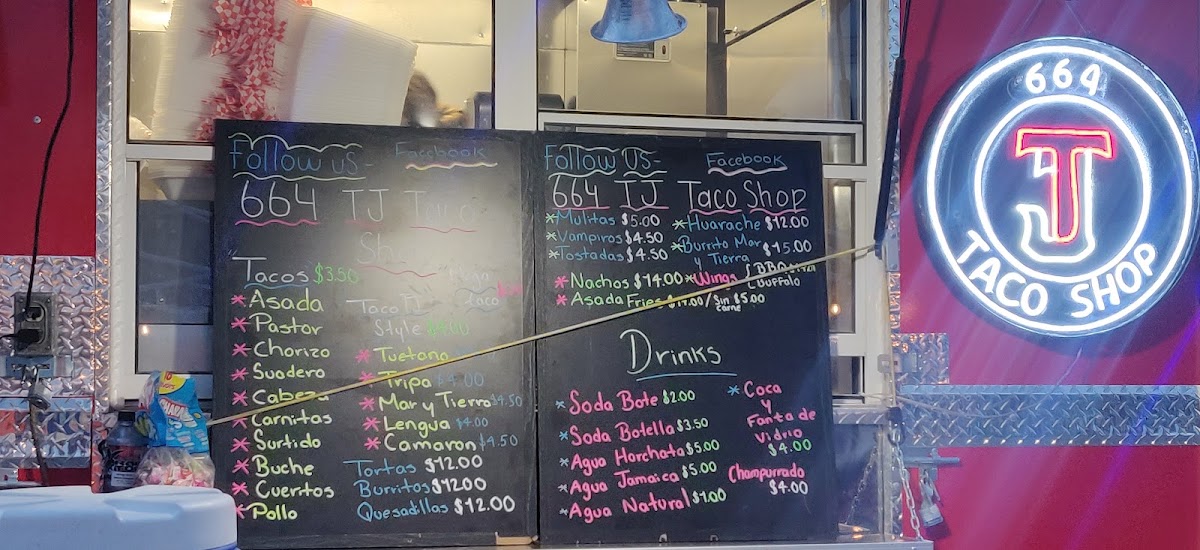 Follow us - Facebook
664 TJ Taco
Sh
Tacos $3.50
* Asada
* Pastor
* Chorizo
* Suadero
* Cabeza
* Carnitas
* Surtido
* Buche
* Cueritos
* Pollo
Taco TJ
Style
* Tuetano
* Tripa $4.00
* Mar y Tierra $4.50
* Lengua $4.00
* Camaron $4.50
Tortas $12.00
Burritos $12.00
Quesadillas $12.00
Follow Us - Facebook
664 TJ Taco Shop
* Mulitas $5.00
* Vampiros $4.50
* Tostadas $4.50
* Huarache $12.00
* Burrito Mar
y Tierra $15.00
* Nachos $14.00 * Wings BBQ
Buffalo
* Asada Fries / Sin $5.00
carne
Drinks
* Soda Bote $2.00
* Soda Botella $3.50
* Agua Horchata $5.00
* Agua Jamaica $5.00
* Agua Natural $1.00
* Coca
y
Fanta de
Vidrio
$4.00
Champurrado
$4.00
664
TJ
TACO SHOP